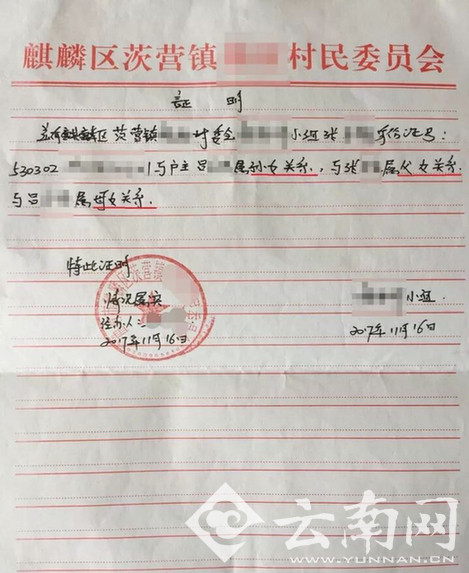 麒麟区茨营镇 村民委员会
证 明
兹有麒麟区茨营镇 村委会 小组张 身份证号:
530302 1与户主吕 属孙女关系,与张 属父女关系.
与吕 属母女关系.
特此证明
情况属实
经办人:
2017年11月16日
小组
2017年11月16日
区茨营镇
云南网
WWW.YUNNAN.CN